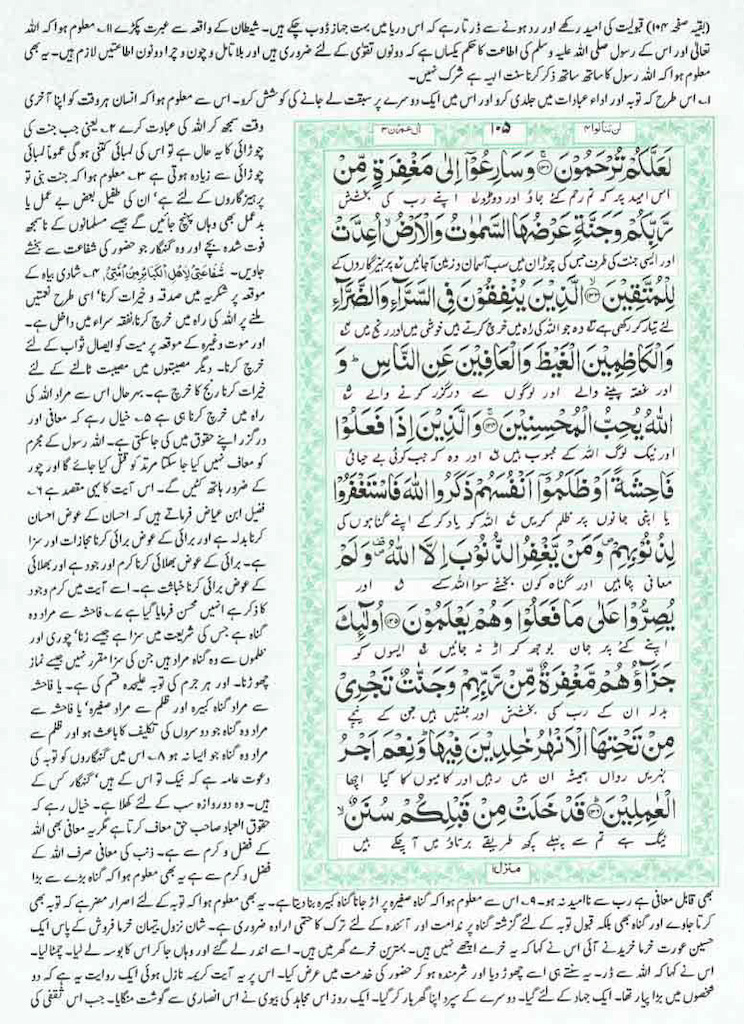 (بقیہ صفحہ ۱۰۴) قبولیت کی امید رکھے اور رد ہونے سے ڈرتا رہے کہ اس دریا میں بہت جہاز ڈوب چکے ہیں۔ شیطان کے واقعہ سے عبرت پکڑے ۱۱۔ معلوم ہوا کہ اللہ
تعالیٰ اور اس کے رسول صلی اللہ علیہ وسلم کی اطاعت کا حکم یکساں ہے کہ دونوں تقویٰ کے لئے ضروری ہیں اور بلا تامل و چون و چرا دونوں اطاعتیں لازم ہیں۔ یہ بھی
معلوم ہوا کہ اللہ رسول کا ساتھ ساتھ ذکر کرنا سنت الہیہ ہے شرک نہیں۔
۱۔ اس طرح کہ توبہ اور اداء عبادات میں جلدی کرو اور اس میں ایک دوسرے پر سبقت لے جانے کی کوشش کرو۔ اس سے معلوم ہوا کہ انسان ہر وقت کو اپنا آخری
وقت سمجھ کر اللہ کی عبادت کرے ۲۔ یعنی جب جنت کی
چوڑائی کا یہ حال ہے تو اس کی لمبائی کتنی ہو گی عموماً لمبائی
چوڑائی سے زیادہ ہوتی ہے ۳۔ معلوم ہوا کہ جنت بنی تو
پرہیزگاروں کے لئے ہے' ان کی طفیل بعض بے عمل یا
بدعمل بھی وہاں پہنچ جائیں گے جیسے مسلمانوں کے ناسمجھ
فوت شدہ بچے اور وہ گنہگار جو حضور کی شفاعت سے بخشے
جاویں۔ شَفَاعَتِیْ لِاَھْلِ الْکَبَائِرِ مِنْ اُمَّتِیْ ۴۔ شادی بیاہ کے
موقعہ پر شکریہ میں صدقہ و خیرات کرنا' اسی طرح نعمتیں
ملنے پر اللہ کی راہ میں خرچ کرنا نفقہ سراء میں داخل ہے۔
اور موت وغیرہ کے موقعہ پر میت کو ایصال ثواب کے لئے
خرچ کرنا۔ دیگر مصیبتوں میں مصیبت ٹالنے کے لئے
خیرات کرنا رنج کا خرچ ہے۔ بہرحال اس سے مراد اللہ کی
راہ میں خرچ کرنا ہی ہے ۵۔ خیال رہے کہ معافی اور
درگزر اپنے حقوق میں کی جا سکتی ہے۔ اللہ رسول کے مجرم
کو معاف نہیں کیا جا سکتا مرتد کو قتل کیا جائے گا اور چور
کے ضرور ہاتھ کٹیں گے۔ اس آیت کا یہی مقصد ہے ۶۔
فضیل ابن عیاض فرماتے ہیں کہ احسان کے عوض احسان
کرنا بدلہ ہے اور برائی کے عوض برائی کرنا مجازات اور سزا
ہے۔ برائی کے عوض بھلائی کرنا کرم اور جود ہے اور بھلائی
کے عوض برائی کرنا خباثت ہے۔ اسے آیت میں کرم وجود
کا ذکر ہے انہیں محسن فرمایا گیا ہے ۷۔ فاحشہ سے مراد وہ
گناہ ہے جس کی شریعت میں سزا ہے جیسے زنا' چوری اور
ظلموں سے وہ گناہ مراد ہیں جن کی سزا مقرر نہیں جیسے نماز
چھوڑنا۔ اور ہر جرم کی توبہ علیحدہ قسم کی ہے۔ یا فاحشہ
سے مراد گناہ کبیرہ اور ظلم سے مراد صغیرہ' یا فاحشہ سے
مراد وہ گناہ جو دوسروں کی تکلیف کا باعث ہو اور ظلم سے
مراد وہ گناہ جو ایسا نہ ہو ۸۔ اس میں گنہگاروں کو توبہ کی
دعوت عامہ ہے کہ نیک تو اس کے ہیں' گنہگار کس کے
ہیں۔ وہ دوروازہ سب کے لئے کھلا ہے۔ خیال رہے کہ
حقوق العباد صاحب حق معاف کرتا ہے مگر یہ معافی بھی اللہ
کے فضل و کرم سے ہے۔ ذنب کی معافی صرف اللہ کے
فضل و کرم سے ہے یہ بھی معلوم ہوا کہ گناہ بڑے سے بڑا
لن تنالوا ۴
۱۰۵
اٰل عمرٰن ۳
لَعَلَّكُمْ تُرْحَمُوْنَ ۝۱۳۲ وَسَارِعُوْٓا اِلٰى مَغْفِرَةٍ مِّنْ
اس امید پر کہ تم رحم کئے جاؤ اور دوڑو ۱ اپنے رب کی بخشش
رَّبِّكُمْ وَجَنَّةٍ عَرْضُهَا السَّمٰوٰتُ وَالْاَرْضُ ۙ اُعِدَّتْ
اور ایسی جنت کی طرف جس کی چوڑان میں سب آسمان و زمین آجائیں ۲ پرہیزگاروں کے
لِلْمُتَّقِيْنَ ۝۱۳۳ الَّذِيْنَ يُنْفِقُوْنَ فِى السَّرَّآءِ وَالضَّرَّآءِ
لئے تیار کر رکھی ہے ۳ وہ جو اللہ کی راہ میں خرچ کرتے ہیں خوشی میں اور رنج میں ۴
وَالْكَاظِمِيْنَ الْغَيْظَ وَالْعَافِيْنَ عَنِ النَّاسِ ؕ وَ
اور غصہ پینے والے اور لوگوں سے درگزر کرنے والے ۵
اللّٰهُ يُحِبُّ الْمُحْسِنِيْنَ ۝۱۳۴ وَالَّذِيْنَ اِذَا فَعَلُوْا
اور نیک لوگ اللہ کے محبوب ہیں ۶ اور وہ کہ جب کوئی بے حیائی
فَاحِشَةً اَوْ ظَلَمُوْٓا اَنْفُسَهُمْ ذَكَرُوا اللّٰهَ فَاسْتَغْفَرُوْا
یا اپنی جانوں پر ظلم کریں ۷ اللہ کو یاد کر کے اپنے گناہوں کی
لِذُنُوْبِهِمْ ۪ وَمَنْ يَّغْفِرُ الذُّنُوْبَ اِلَّا اللّٰهُ ۪ وَلَمْ
معافی چاہیں اور گناہ کون بخشے سوا اللہ کے ۸ اور
يُصِرُّوْا عَلٰى مَا فَعَلُوْا وَهُمْ يَعْلَمُوْنَ ۝۱۳۵ اُولٰٓئِكَ
اپنے کئے پر جان بوجھ کر اڑ نہ جائیں ۹ ایسوں کو
جَزَآؤُهُمْ مَّغْفِرَةٌ مِّنْ رَّبِّهِمْ وَجَنّٰتٌ تَجْرِىْ
بدلہ ان کے رب کی بخشش اور جنتیں ہیں جن کے نیچے
مِنْ تَحْتِهَا الْاَنْهٰرُ خٰلِدِيْنَ فِيْهَا ؕ وَنِعْمَ اَجْرُ
نہریں رواں ہمیشہ ان میں رہیں اور کامیوں کا کیا اچھا
الْعٰمِلِيْنَ ۝۱۳۶ قَدْ خَلَتْ مِنْ قَبْلِكُمْ سُنَنٌ ۙ
نیگ ہے تم سے پہلے کچھ طریقے برتاؤ میں آچکے ہیں
منزل ۱
بھی قابل معافی ہے رب سے ناامید نہ ہو۔ ۹۔ اس سے معلوم ہوا کہ گناہ صغیرہ پر اڑ جانا گناہ کبیرہ بنا دیتا ہے۔ یہ بھی معلوم ہوا کہ توبہ کے لئے اصرار مضر ہے کہ توبہ بھی
کرتا جاوے اور گناہ بھی بلکہ قبول توبہ کے لئے گزشتہ گناہ پر ندامت اور آئندہ کے لئے ترک کا حتمی ارادہ ضروری ہے۔ شان نزول تیہان خرما فروش کے پاس ایک
حسین عورت خرما خریدنے آئی اس نے کہا کہ یہ خرمے اچھے نہیں ہیں۔ بہترین خرمے گھر میں ہیں۔ اسے اندر لے گئے اور وہاں جا کر اس کا بوسہ لے لیا۔ چمٹا لیا۔
اس نے کہا کہ اللہ سے ڈر۔ یہ سنتے ہی اسے چھوڑ دیا اور شرمندہ ہو کر حضور کی خدمت میں عرض کیا۔ اس پر یہ آیت کریمہ نازل ہوئی ایک روایت یہ ہے کہ دو
شخصوں میں بڑا پیار تھا۔ ایک جہاد کے لئے گیا۔ دوسرے کے سپرد اپنا گھر بار کر گیا۔ ایک روز اس مجاہد کی بیوی نے اس انصاری سے گوشت منگایا۔ جب اس ثقفی کی